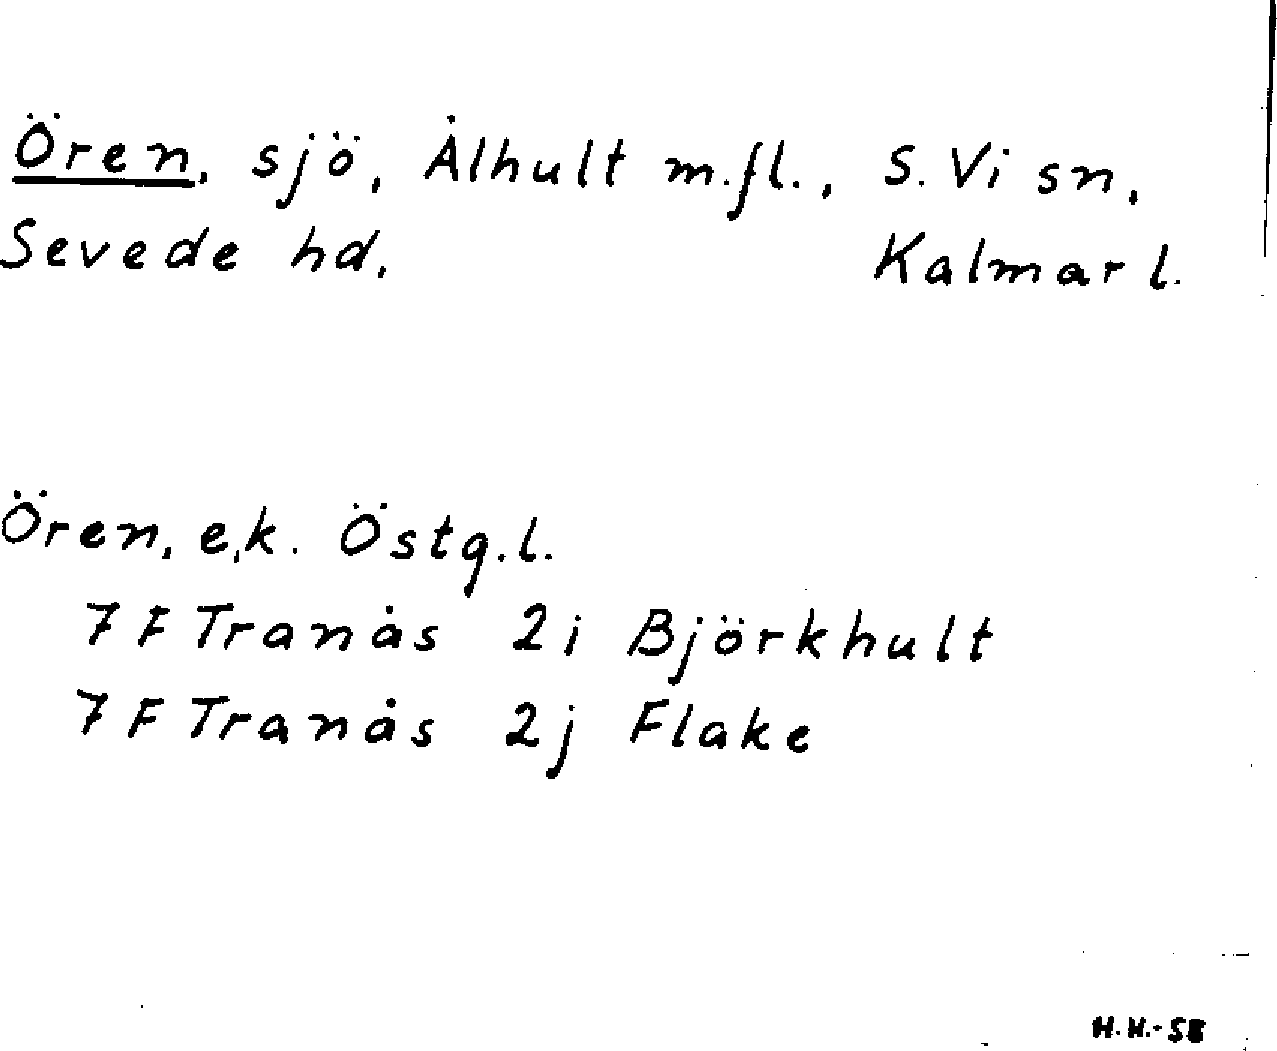 Ören, sjö, Ålhult m.fl., S. Vi sn,
Sevede hd, Kalmar l.
Ören, e,k. Östg.l.
7 F Tranås 2i Björkhult
7 F Tranås 2j Flake
H.H.-58